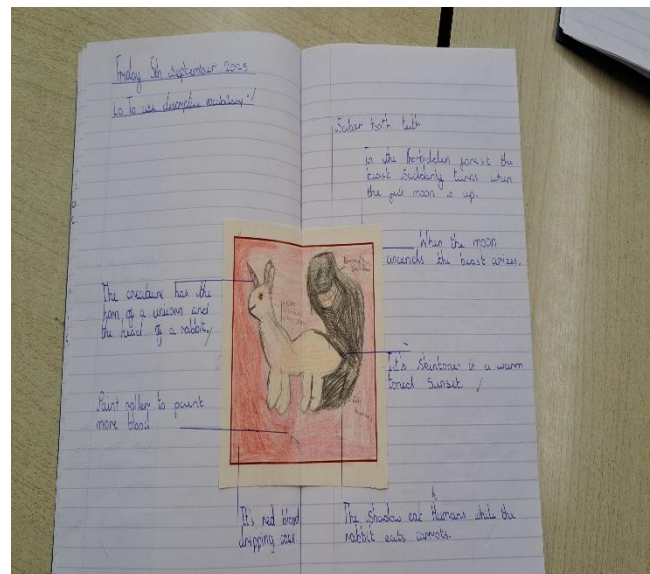 Friday 5th September 2025
LO To use descriptive vocabulary
The creature has the
horn of a unicorn and
the head of a rabbit
Paint roller to paint
more blood
It's red blood
dripping
Saber tooth teeth
In the forest the
beast suddenly turns when
the moon is up.
When the moon
ascends the beast arizes.
It's skintone is a warm
toned sunset
The shadow eat Humans while the
rabbit eats carrots.